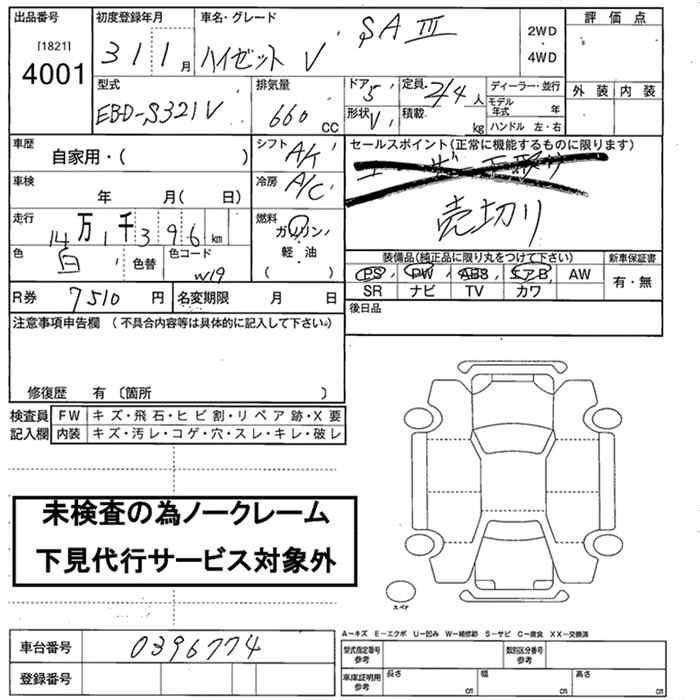 出品番号 初度登録年月 車名・グレード 評価点
[1821] SAⅢ 2WD
4001 31 1月 ハイゼット V 4WD
型式 排気量 ドア 5 定員 2/4人 ディーラー・並行 外装 内装
EBD-S321V 660cc 形状 V 積載 kg モデル年式 年
ハンドル 左・右
車歴 シフト A/t セールスポイント(正常に機能するものに限ります)
自家用・( )
車検 冷房 A/C
年 月( 日) 売切り
走行 14万1千396km 燃料 ガソリン
軽・油
( )
色 白 色替 色コード W19 装備品(純正品に限り丸をつけて下さい) 新車保証書
PS PW ABS エアB AW 有・無
R券 7510円 名変期限 月 日 SR ナビ TV カワ
注意事項申告欄 (不具合内容等は具体的に記入して下さい) 後日品
修復歴 有 〔箇所 〕
検査員 FW キズ・飛石・ヒビ割・リペア跡・X要
記入欄 内装 キズ・汚レ・コゲ・穴・スレ・キレ・破レ
未検査の為ノークレーム
下見代行サービス対象外
スペア
A-キズ E-エクボ U-凹み W-補修跡 S-サビ C-腐食 XX-交換済
車台番号 0396774 型式指定番号 参考 類別区分番号 参考
登録番号 車庫証明用 参考 長さ cm 幅 cm 高さ cm